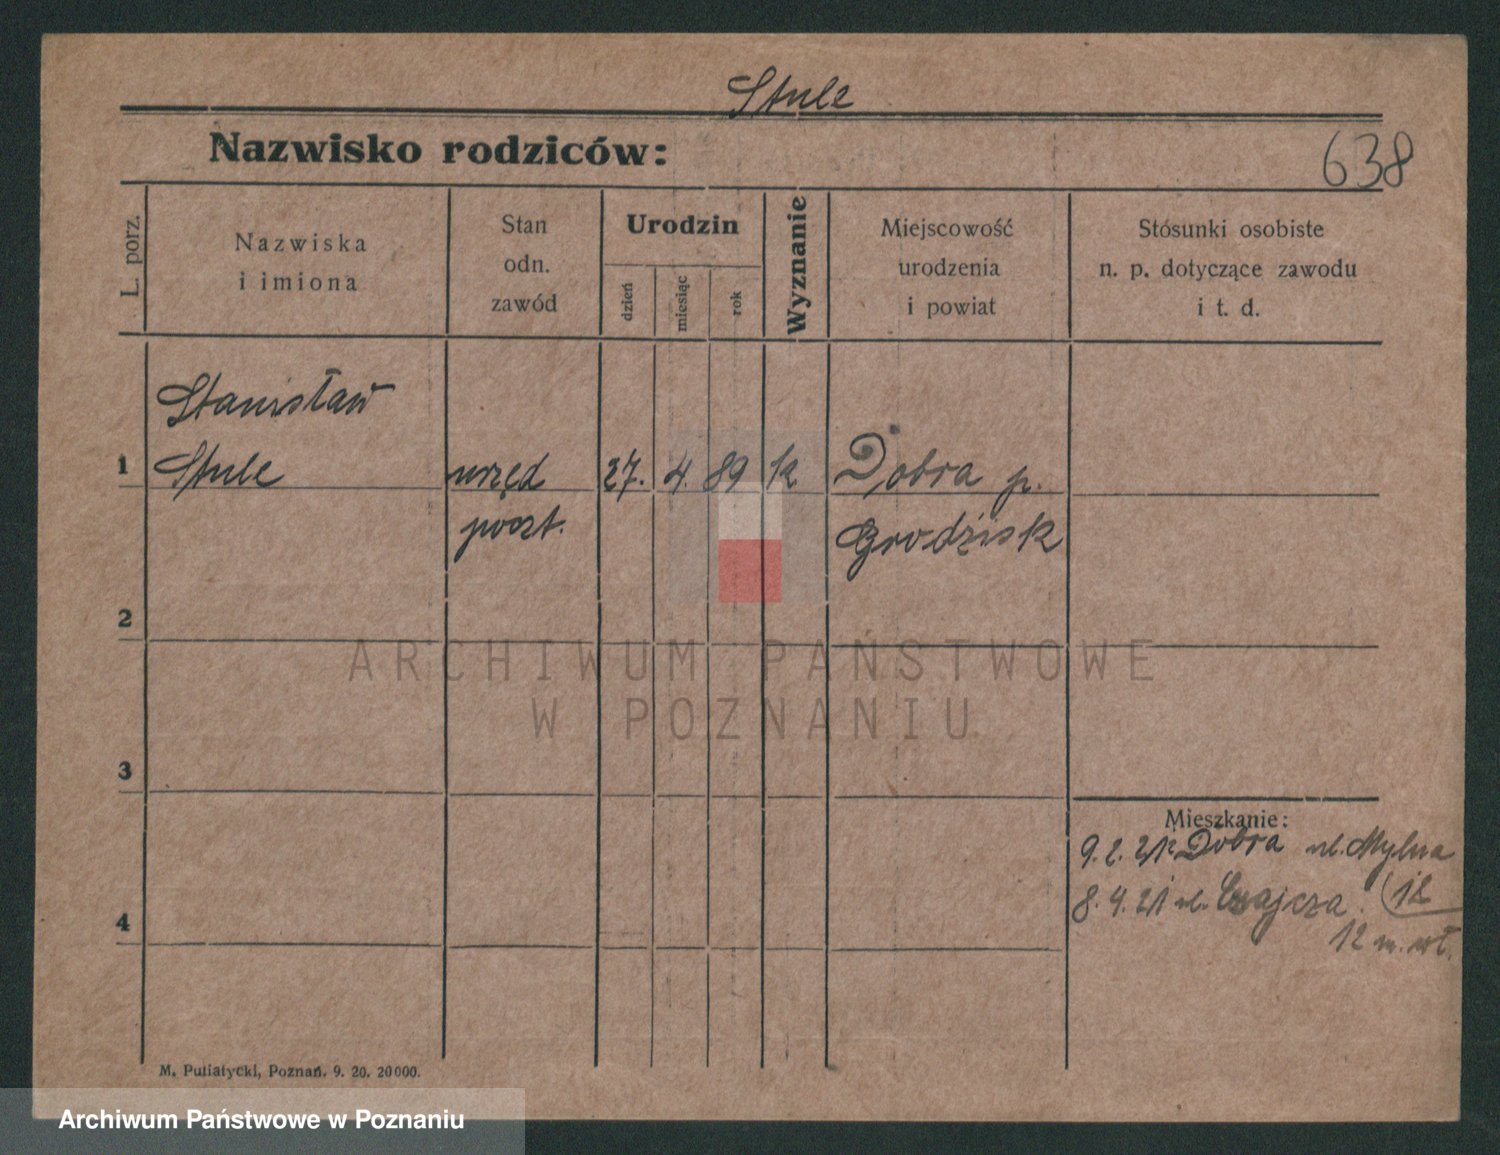 Stule
Nazwisko rodziców:
638
L. porz.
Nazwiska
i imiona
Stan
odn.
zawód
Urodzin
dzień
miesiąc
rok
Wyznanie
Miejscowość
urodzenia
i powiat
Stósunki osobiste
n. p. dotyczące zawodu
i t. d.
Stanisław
1 Stule urzęd 27. 4. 89 k Dobra p.
poczt. Grodzisk
2
ARCHIWUM PAŃSTWOWE
W POZNANIU
3
Mieszkanie:
9. 2. 21 Dobra ul. Mylna
8. 4. 21 ul. Czajcza 12
4
12 m. wł.
M. Putiatycki, Poznań. 9. 20. 20000.
Archiwum Państwowe w Poznaniu